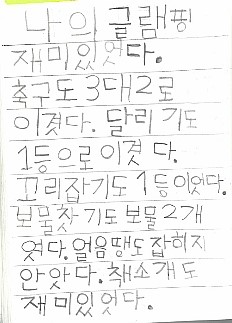 나의 글램핑
재미있엇다.
축구도 3대2로
이겻다. 달리기도
1등으로 이겻다.
꼬리잡기도 1등이었다.
보물찻기도 보물2개
엿다. 얼음땡도 잡히지
안앗다. 책소개도
재미있엇다.